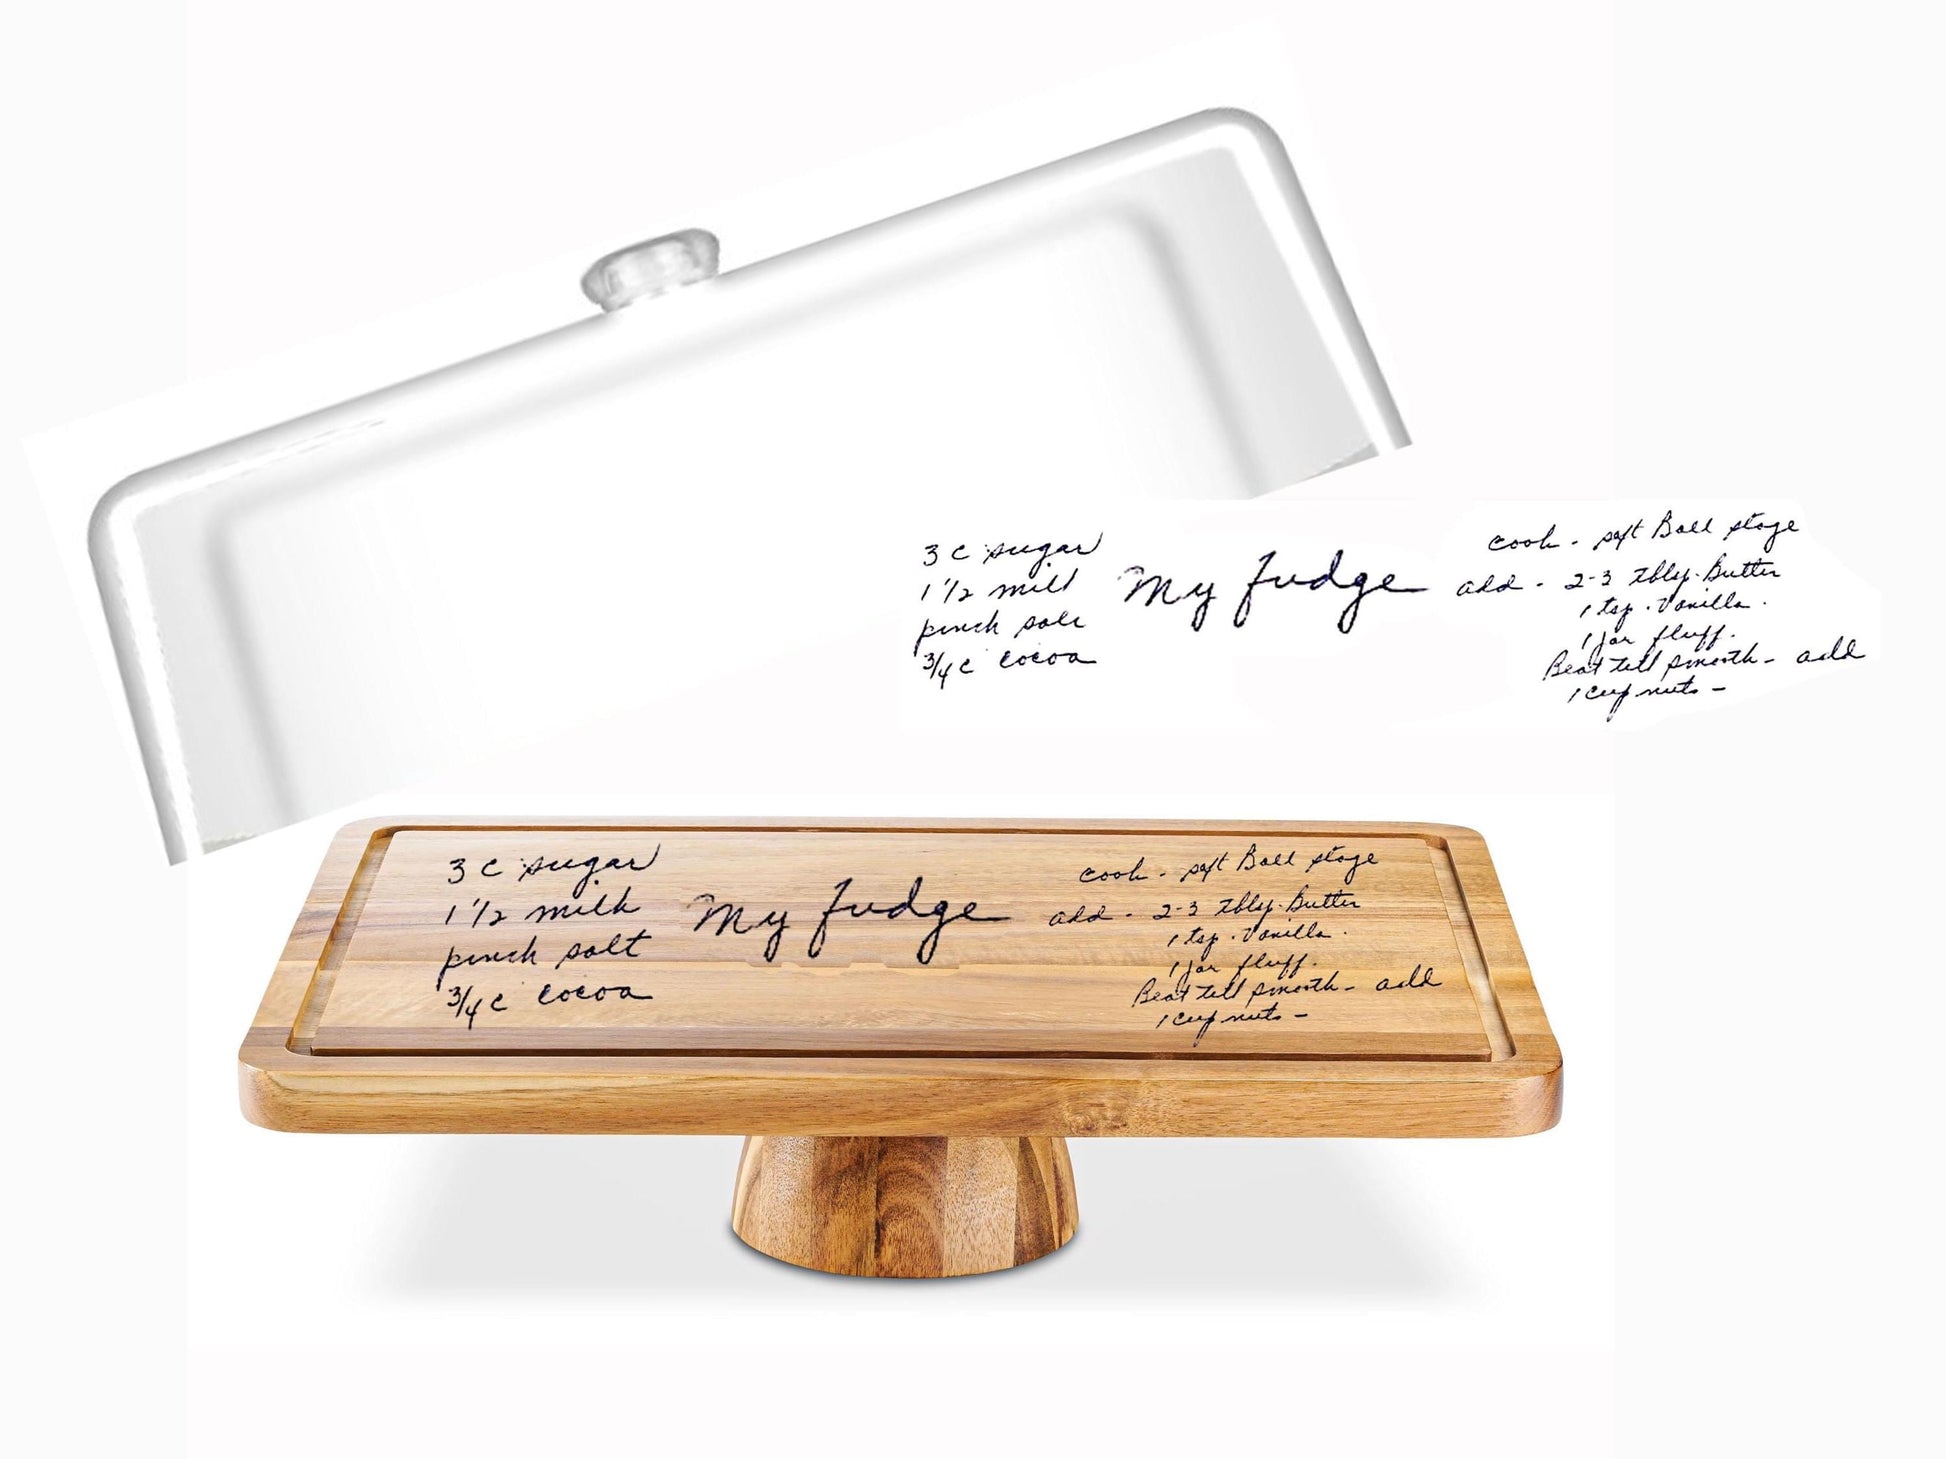 3 c sugar
1 1/2 milk
pinch salt
3/4 c cocoa
My fudge
cook - soft Ball stage
add - 2-3 tblsp. Butter
1 tsp. Vanilla.
1 jar fluff.
Beat till smooth - add
1 cup nuts -
3 c sugar
1 1/2 milk
pinch salt
3/4 c cocoa
My fudge
cook - soft Ball stage
add - 2-3 tblsp. Butter
1 tsp. Vanilla.
1 jar fluff.
Beat till smooth - add
1 cup nuts -